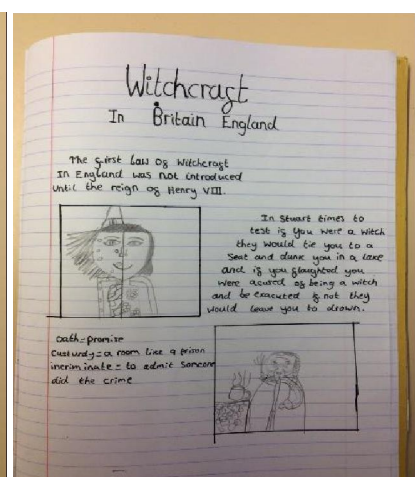 Witchcragt
In Britain England
The girst law og witchcragt
In England was not introduced
until the reign og Henry VIII.
In Stuart times to
test ig you were a witch
they would tie you to a
seat and dunk you in a lake
and ig you glaughted you
were acused og being a witch
and be exacuted ig not they
would leave you to drown.
oath=promise
Custurdy=a room like a prison
incriminate=to admit someone
did the crime